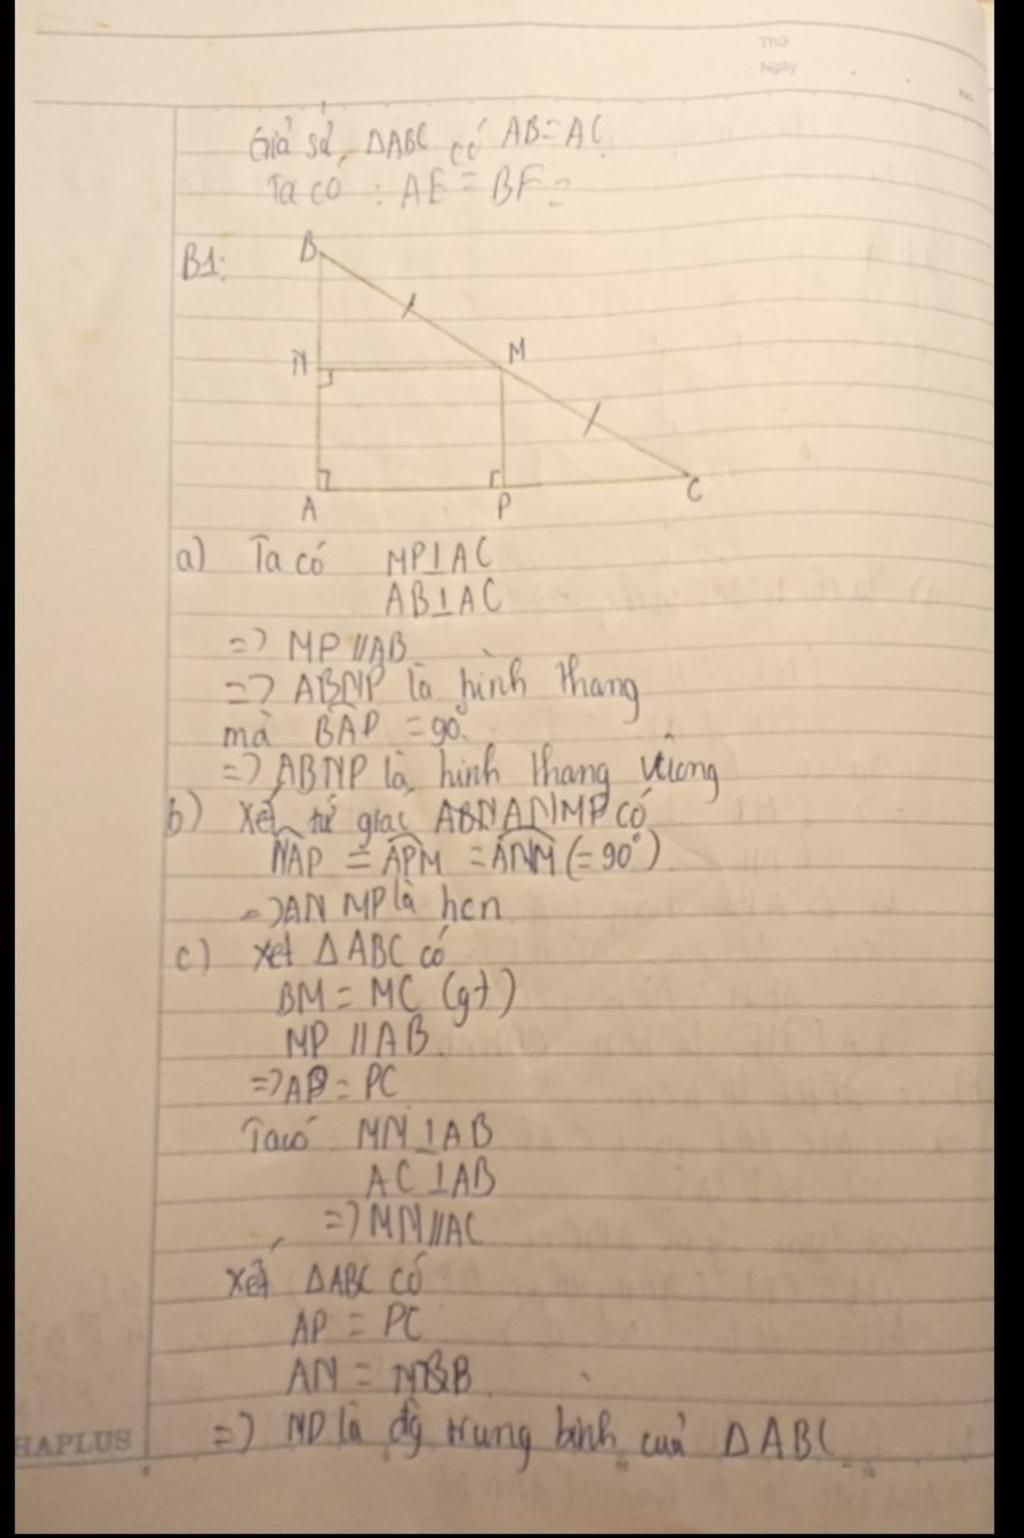 Thứ
Ngày
No.
Giả sử ΔABC có AB = AC
Ta có : AE = BF =
B1:
B
N
M
A
P
C
a) Ta có MP⊥AC
AB⊥AC
=> MP // AB
=> ABNP là hình thang
mà BAP = 90°
=> ABNP là hình thang vuông
b) Xét tứ giác ANMP có
NAP = APM = ANM (= 90°)
=> ANMP là hcn
c) Xét ΔABC có
BM = MC (gt)
MP // AB
=> AP = PC
Ta có MN⊥AB
AC⊥AB
=> MN // AC
Xét ΔABC có
AP = PC
AN = NB
=> NP là đg trung bình của ΔABC
HAPLUS